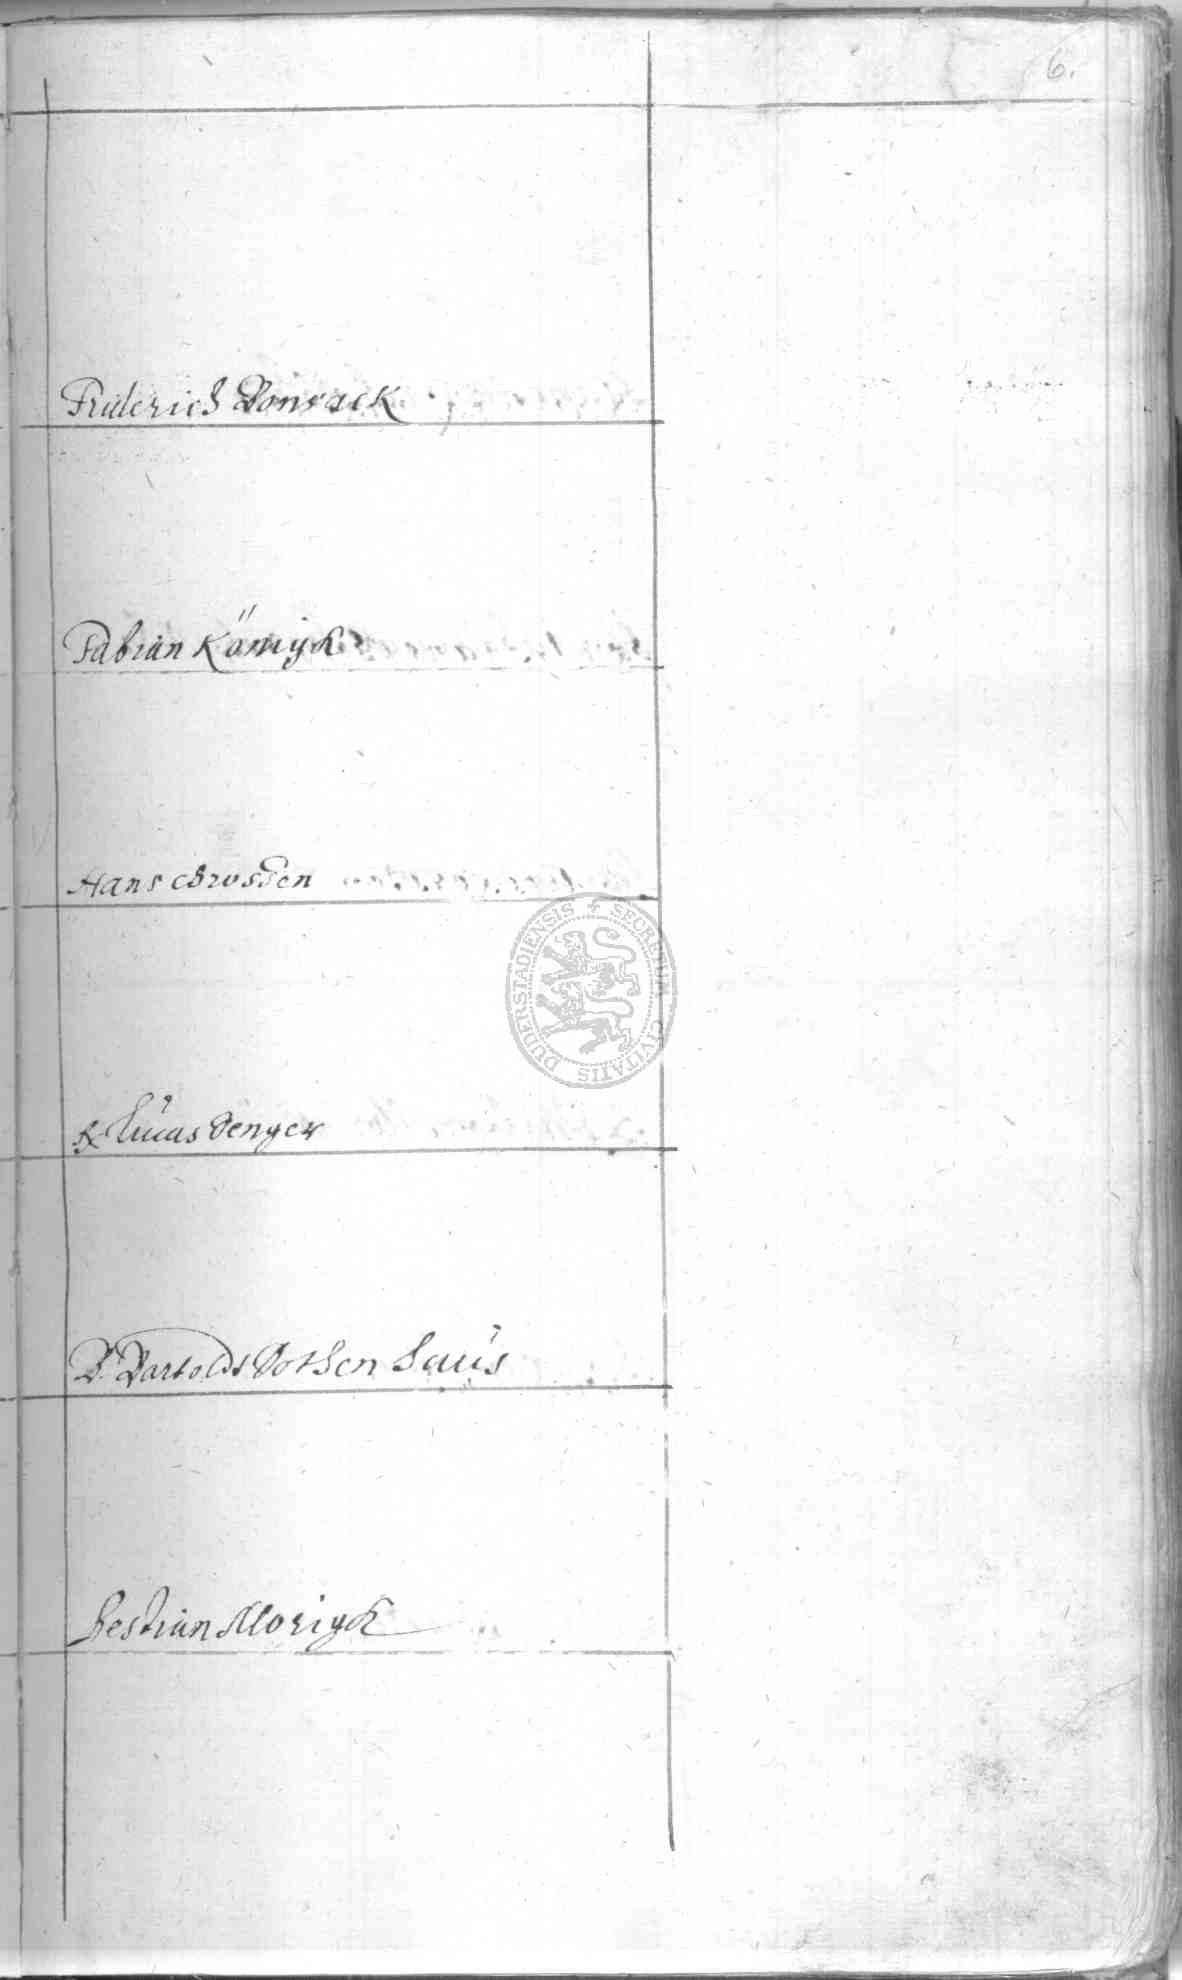 6.
Friderich Donrack
Fabian Könnigk
Hans Brossen
Lucas Denger
D. Bartoldt Dothen Haus
Bestian Morigk
SECRETUM CIVITATIS DUDERSTADIENSIS